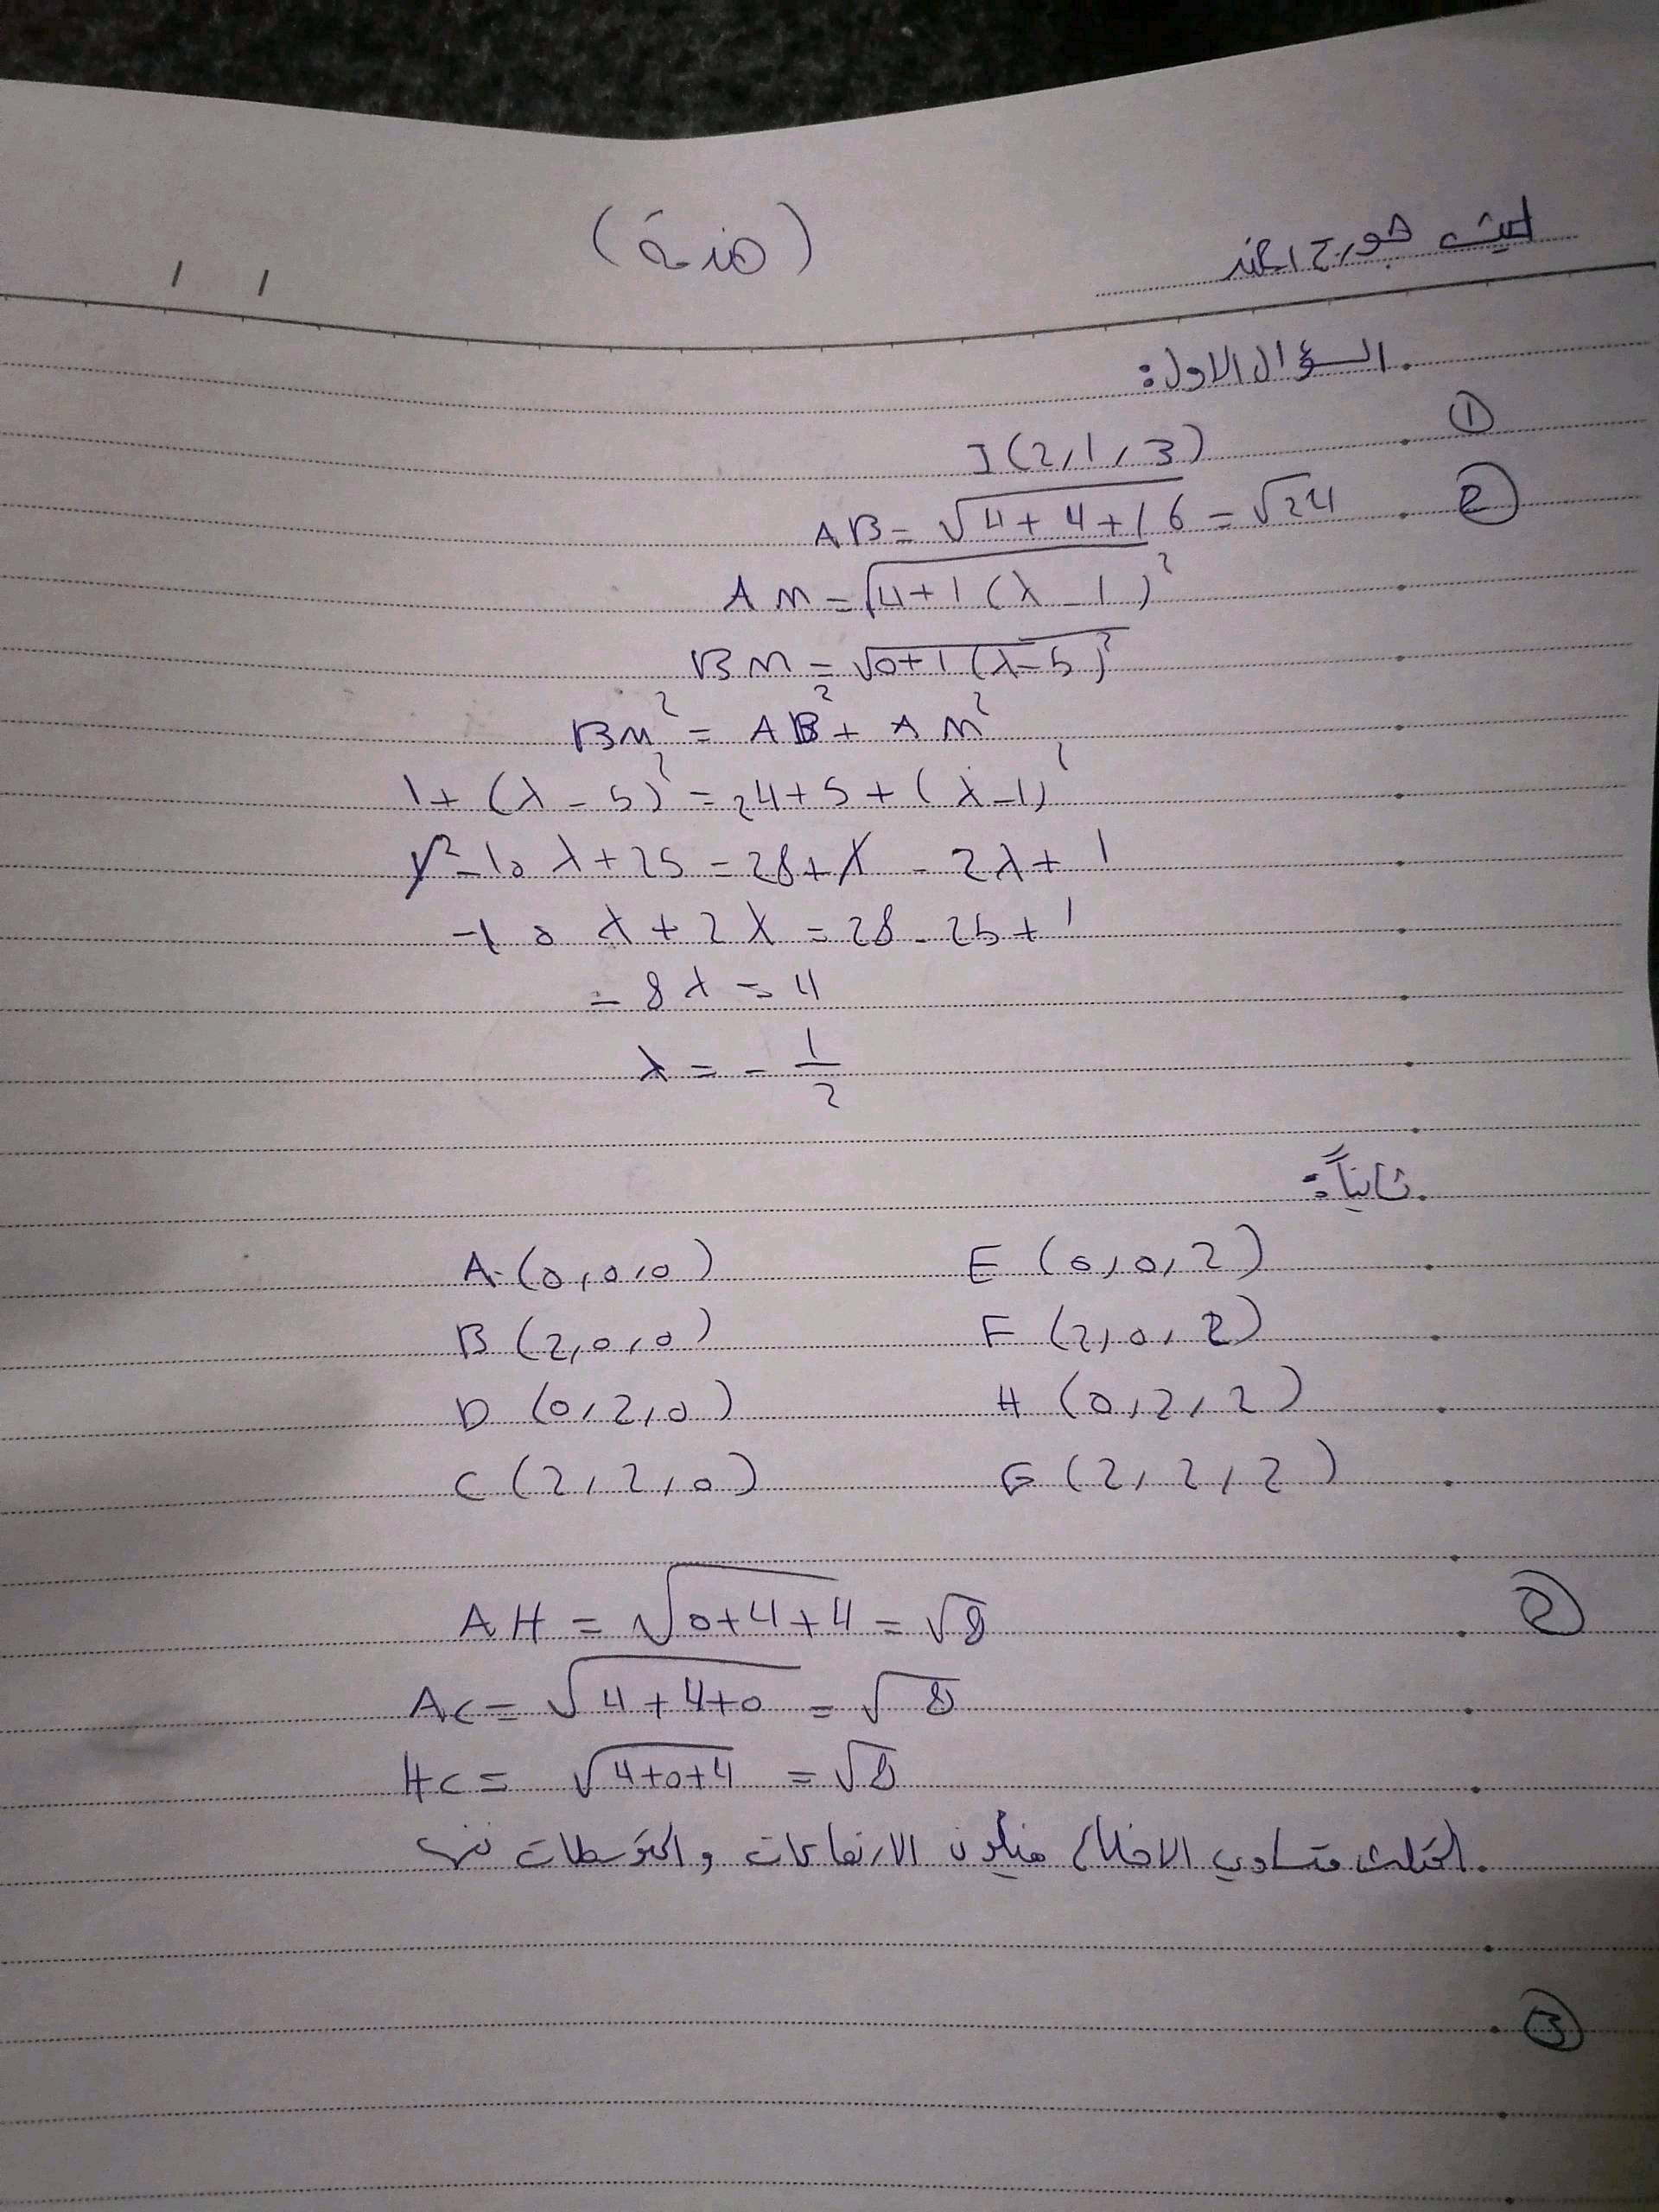 ليث جورج الجند
(هندسة)
/ /
السؤال الاول:
①
J (2, 1, 3)
②
AB = √4 + 4 + 16 = √24
AM = √4 + 1 (λ - 1)²
BM = √0 + 1 (λ - 5)²
BM² = AB² + AM²
1 + (λ - 5)² = 24 + 5 + (λ - 1)²
λ² - 10 λ + 25 = 28 + λ - 2λ + 1
-10 λ + 2 λ = 28 - 25 + 1
- 8 λ = 4
λ = - 1/2
ثانياً:
A (0, 0, 0) E (0, 0, 2)
B (2, 0, 0) F (2, 0, 2)
D (0, 2, 0) H (0, 2, 2)
C (2, 2, 0) G (2, 2, 2)
②
AH = √0 + 4 + 4 = √8
AC = √4 + 4 + 0 = √8
HC = √4 + 0 + 4 = √8
المثلث متساوي الاضلاع فتكون الارتفاعات والمتوسطات
③